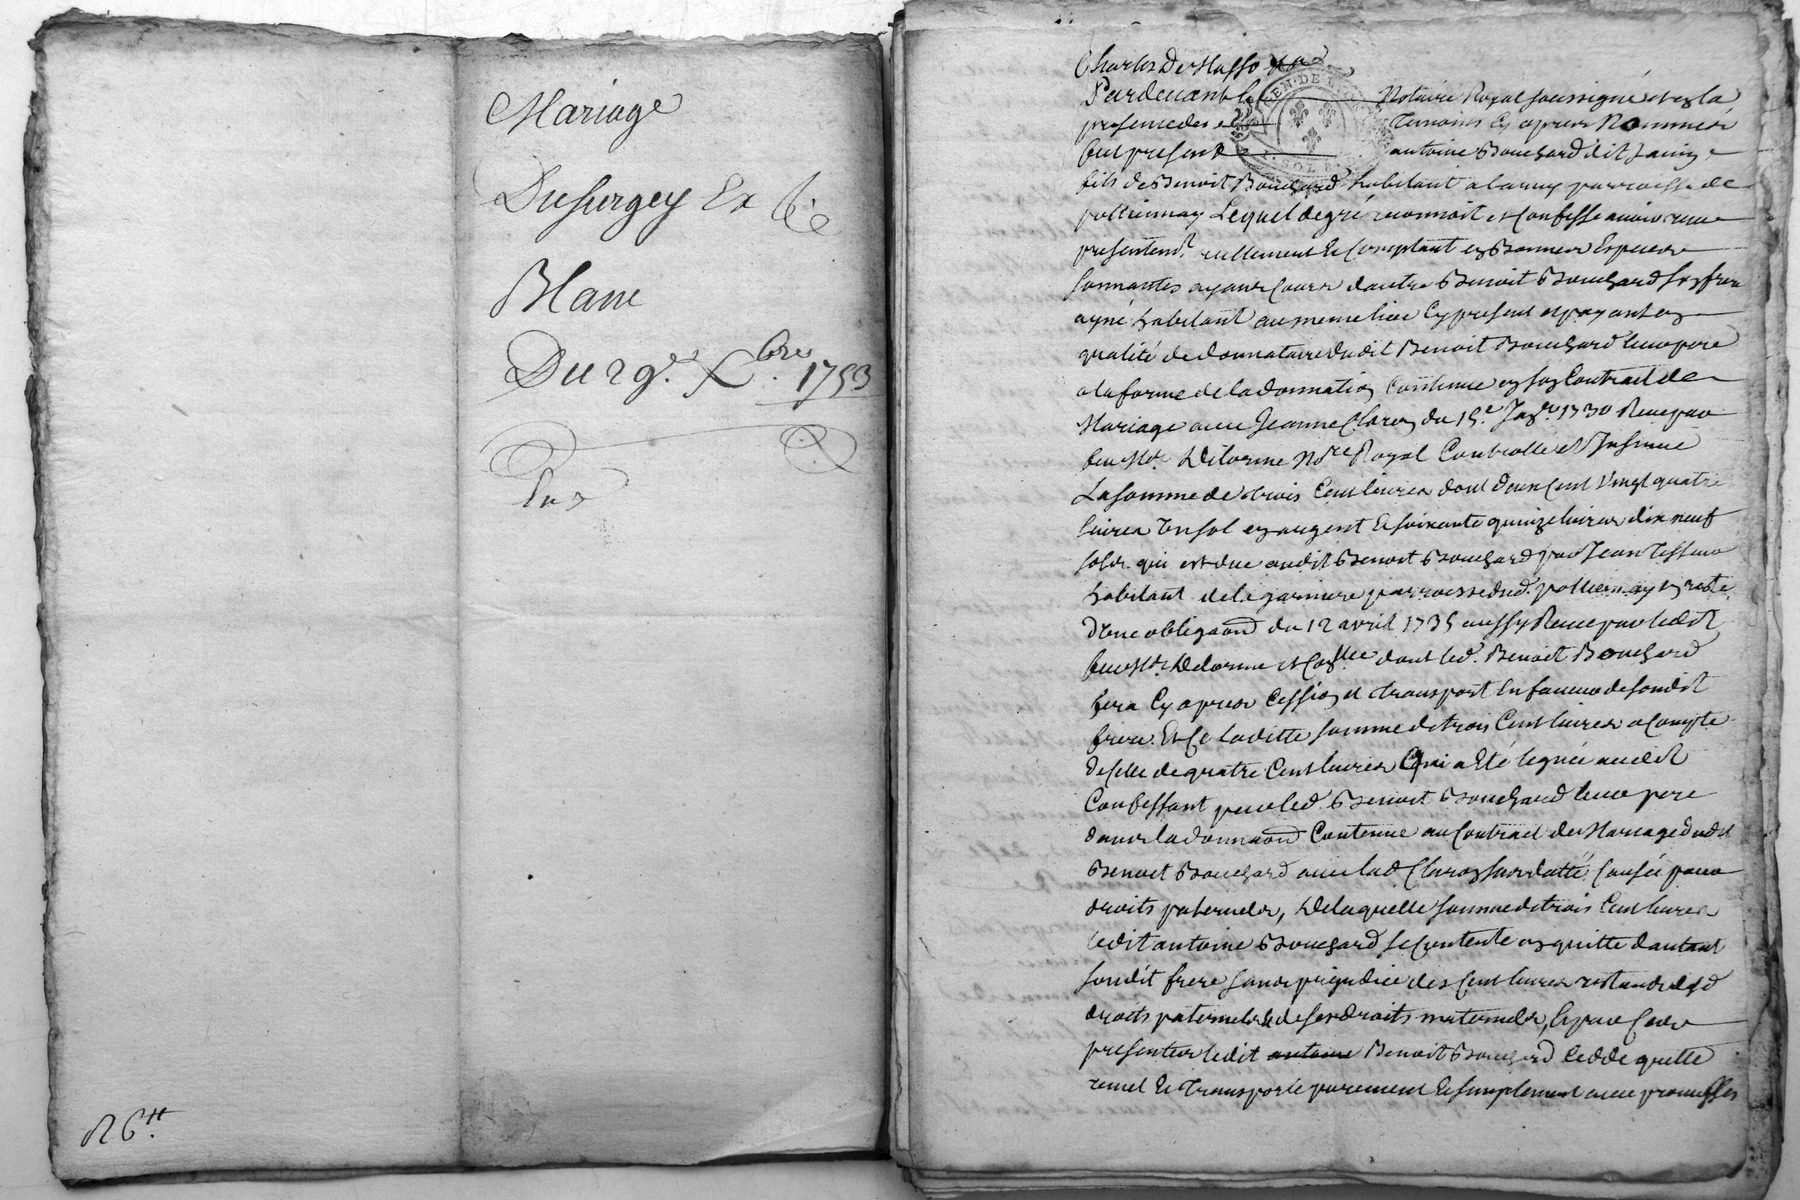 Mariage
Dusurgey Et
Blanc
Du 29e. Xbre. 1753
R 6tt.
Pardevant le Notaire Royal soussigné et en la
presence des Temoins cy apres Nommés
fut present antoine Bouchard dit
fils de Benoit Bouchard habitant a parroisse de
pollionnay Lequel de gré reconnoit et Confesse avoir receu
presentemt. reellement & Comptant en Bonnes Especes
sonnantes ayant Cours d'autre Benoit Bouchard son frere
ayné habitant au meme lieu Cy present et payant en
qualité de donnataire dudit Benoit Bouchard leur pere
a la forme de la donnation Contenue en son Contract de
Mariage avec Jeanne Claron du 15e. Janr. 1730 Receu par
feu Me. Delorme Nore Royal Controllé et Insinué
La somme de trois Cent livres dont deux Cent vingt quatre
livres un sol en argent & soixante quinze livres dix neuf
sols qui est due audit Benoit Bouchard par Jean
habitant de la garniere parroisse dud. pollionnay en reste
d'une obligaõn du 12 avril 1735 aussy Receue par ledit
feu Me. Delorme et Conllée dont led. Benoit Bouchard
fera Cy apres Cession et transport en faveur de sondit
frere Et Ce laditte somme de trois Cent livres a Compte
de celle de quatre Cent livres Qui a Eté leguée audit
Confessant par led. Benoit Bouchard leur pere
dans la donnaõn Contenue au Contract de Mariage dudit
Benoit Bouchard avec lad. Claron susdatté Causée pour
droits paternels, De laquelle somme de trois Cent livres
ledit antoine Bouchard se Contente en quitte d'autant
sondit frere sans prejudice des Cent livres restant desd.
droits paternels & de ses droits maternels, & par Ces
presentes ledit antoine Benoit Bouchard Cedde quitte
remet & transporte purement & simplement avec promesses